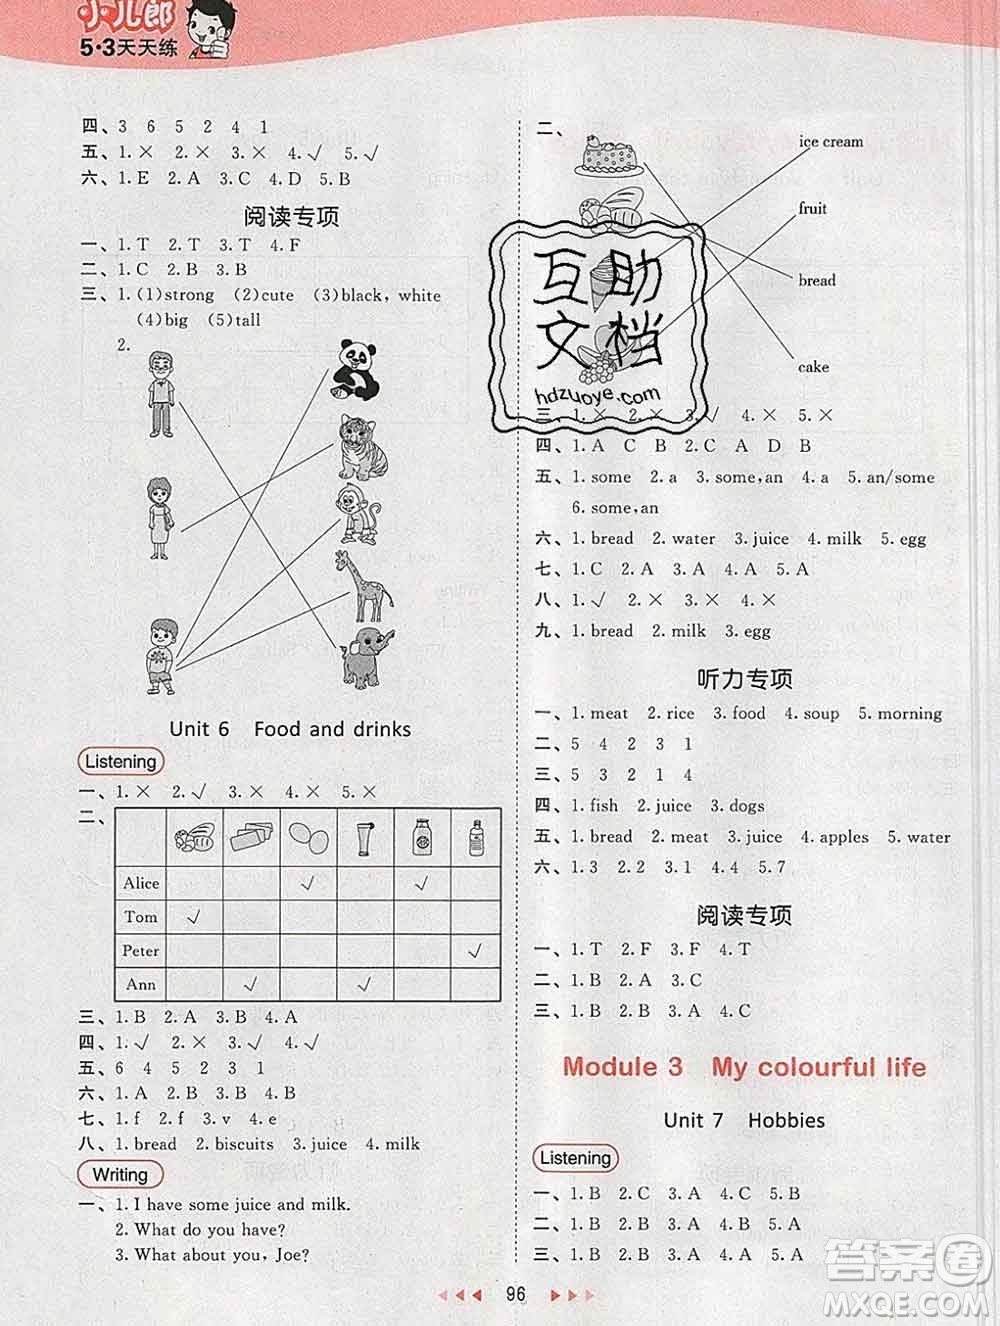 小儿郎
5·3天天练
四、3 6 5 2 4 1
五、1.× 2.× 3.× 4.✓ 5.✓
六、1.E 2.A 3.C 4.D 5.B
阅读专项
一、1.T 2.T 3.T 4.F
二、1.C 2.B 3.B
三、1.(1)strong (2)cute (3)black, white
(4)big (5)tall
2.
Unit 6 Food and drinks
Listening
一、1.× 2.✓ 3.× 4.× 5.×
二、
Alice ✓ ✓
Tom ✓
Peter ✓
Ann ✓ ✓
三、1.B 2.A 3.B 4.A
四、1.✓ 2.× 3.× 4.✓
五、6 4 5 2 3 1
六、1.A 2.B 3.B 4.B
七、1.f 2.f 3.v 4.e
八、1.bread 2.biscuits 3.juice 4.milk
Writing
一、1.I have some juice and milk.
2.What do you have?
3.What about you, Joe?
二、
ice cream
fruit
bread
cake
三、1.× 2.× 3.✓ 4.× 5.×
四、1.A C B 2.C A D B
五、1.some 2.a 3.some,an 4.a 5.an/some
6.some,an
六、1.bread 2.water 3.juice 4.milk 5.egg
七、1.C 2.A 3.A 4.B 5.A
八、1.✓ 2.× 3.× 4.×
九、1.bread 2.milk 3.egg
听力专项
一、1.meat 2.rice 3.food 4.soup 5.morning
二、5 4 2 3 1
三、5 3 2 1 4
四、1.fish 2.juice 3.dogs
五、1.bread 2.meat 3.juice 4.apples 5.water
六、1.3 2.2 3.1 4.4 5.7
阅读专项
一、1.T 2.F 3.F 4.T
二、1.B 2.A 3.C
三、1.B 2.B 3.A 4.C
Module 3 My colourful life
Unit 7 Hobbies
Listening
一、1.B 2.C 3.A 4.C 5.B
二、1.B 2.A 3.A 4.B 5.A
三、1.B 2.A 3.A 4.B 5.A
96
互助
文档
hdzuoye.com
答案圈
MXQE.COM